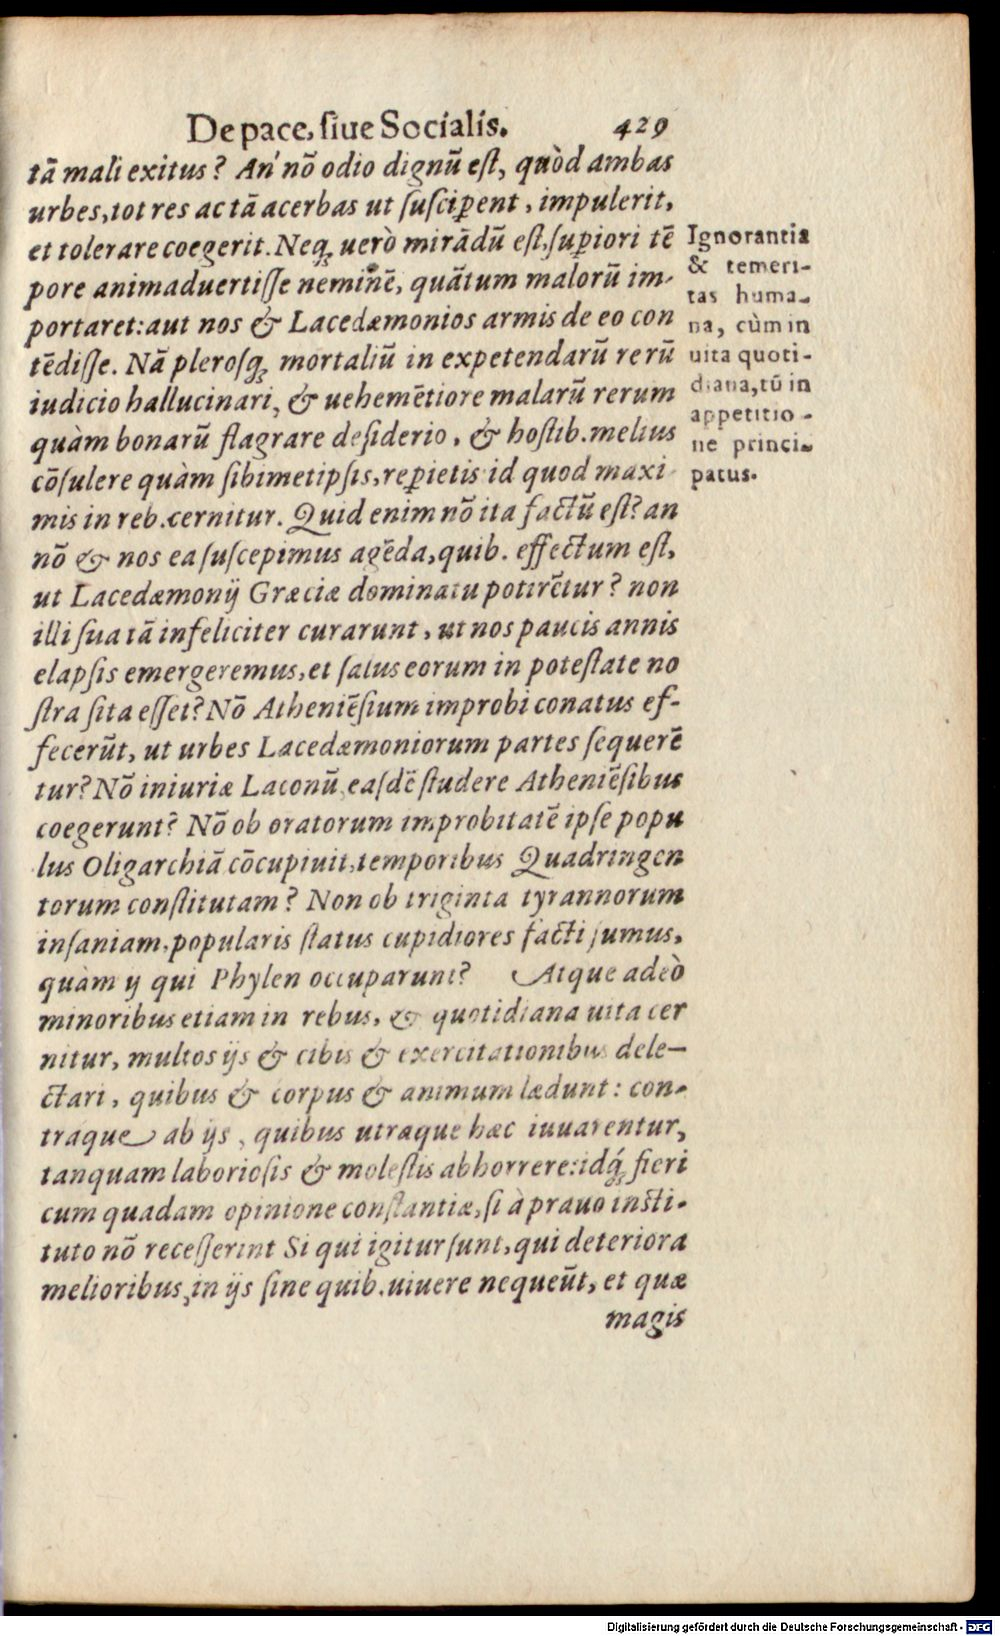 De pace, ſiue Socialis. 429
tā mali exitus? An' nō odio dignū eſt, quòd ambas
urbes, tot res ac tā acerbas ut ſuſcip̱ent, impulerit,
et tolerare coegerit. Neqꝫ uerò mirādū eſt, ſup̱iori tē
pore animaduertiſſe neminē, quātum malorū im-
portaret: aut nos & Lacedæmonios armis de eo con
tēdiſſe. Nā pleroſqꝫ mortaliū in expetendarū rerū
iudicio hallucinari, & uehemētiore malarū rerum
quàm bonarū flagrare deſiderio, & hoſtib. melius
cōſulere quàm ſibimetipſis, rep̱ietis id quod maxi-
mis in reb. cernitur. Quid enim nō ita factū eſt? an
nō & nos ea ſuſcepimus agēda, quib. effectum eſt,
ut Lacedæmonij Græciæ dominatu potirētur? non
illi ſua tā infeliciter curarunt, ut nos paucis annis
elapſis emergeremus, et ſalus eorum in poteſtate no
ſtra ſita eſſet? Nō Atheniēſium improbi conatus ef-
fecerūt, ut urbes Lacedæmoniorum partes ſequerē
tur? Nō iniuriæ Laconū, eaſdē ſtudere Atheniēſibus
coegerunt? Nō ob oratorum improbitatē ipſe popu
lus Oligarchiā cōcupiuit, temporibus Quadringen
torum conſtitutam? Non ob triginta tyrannorum
inſaniam, popularis ſtatus cupidiores facti ſumus,
quàm ij qui Phylen occuparunt? Atque adeò
minoribus etiam in rebus, & quotidiana uita cer
nitur, multos ijs & cibis & exercitationibus dele-
ctari, quibus & corpus & animum lædunt: con-
traque ab ijs, quibus utraque hæc iuuarentur,
tanquam laborioſis & moleſtis abhorrere: idq́ꝫ fieri
cum quadam opinione conſtantiæ, ſi à prauo inſti-
tuto nō receſſerint Si qui igitur ſunt, qui deteriora
melioribus, in ijs ſine quib. uiuere nequeūt, et quæ
magis
Ignorantia
& temeri-
tas huma-
na, cùm in
uita quoti-
diana, tū in
appetitio-
ne princi-
patus.
Digitalisierung gefördert durch die Deutsche Forschungsgemeinschaft - DFG